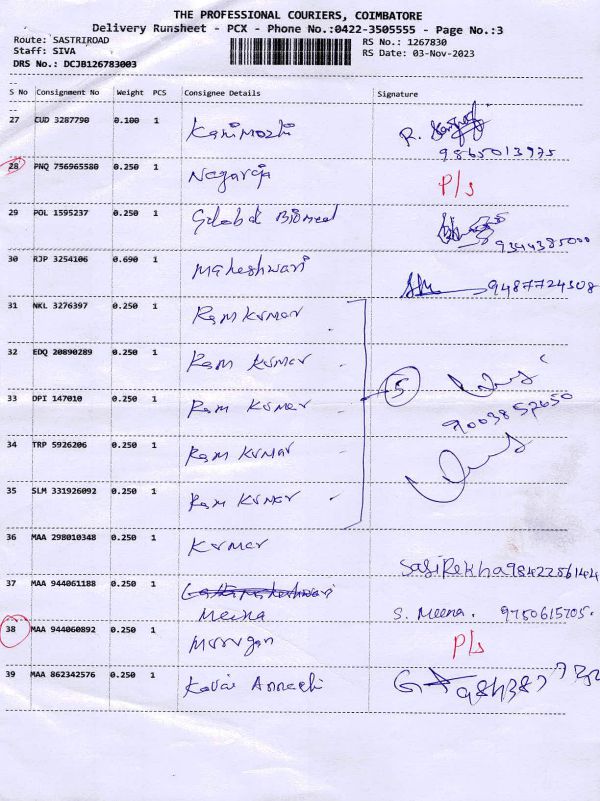 THE PROFESSIONAL COURIERS, COIMBATORE
Delivery Runsheet - PCX - Phone No.:0422-3505555 - Page No.:3
Route: SASTRIROAD RS No.: 1267830
Staff: SIVA RS Date: 03-Nov-2023
DRS No.: DCJB126783003
S No Consignment No Weight PCS Consignee Details Signature
27 CUD 3287790 0.100 1 Kanimozhi R.
9865013975
28 PNQ 756965580 0.250 1 Nagaraja P/s
29 POL 1595237 0.250 1 Biomed
9344385000
30 RJP 3254106 0.690 1 Maheshwari
9487724308
31 NKL 3276397 0.250 1 Ram Kumar
32 EDQ 20890289 0.250 1 Ram Kumar
33 DPI 147010 0.250 1 Ram Kumar 5
9003852650
34 TRP 5926206 0.250 1 Ram Kumar
35 SLM 331926092 0.250 1 Ram Kumar
36 MAA 298010348 0.250 1 Kumar
SasiRekha
37 MAA 944061188 0.250 1
Meena S. Meena. 9750615705.
38 MAA 944060892 0.250 1 Murugan P/s
39 MAA 862342576 0.250 1 Kovai